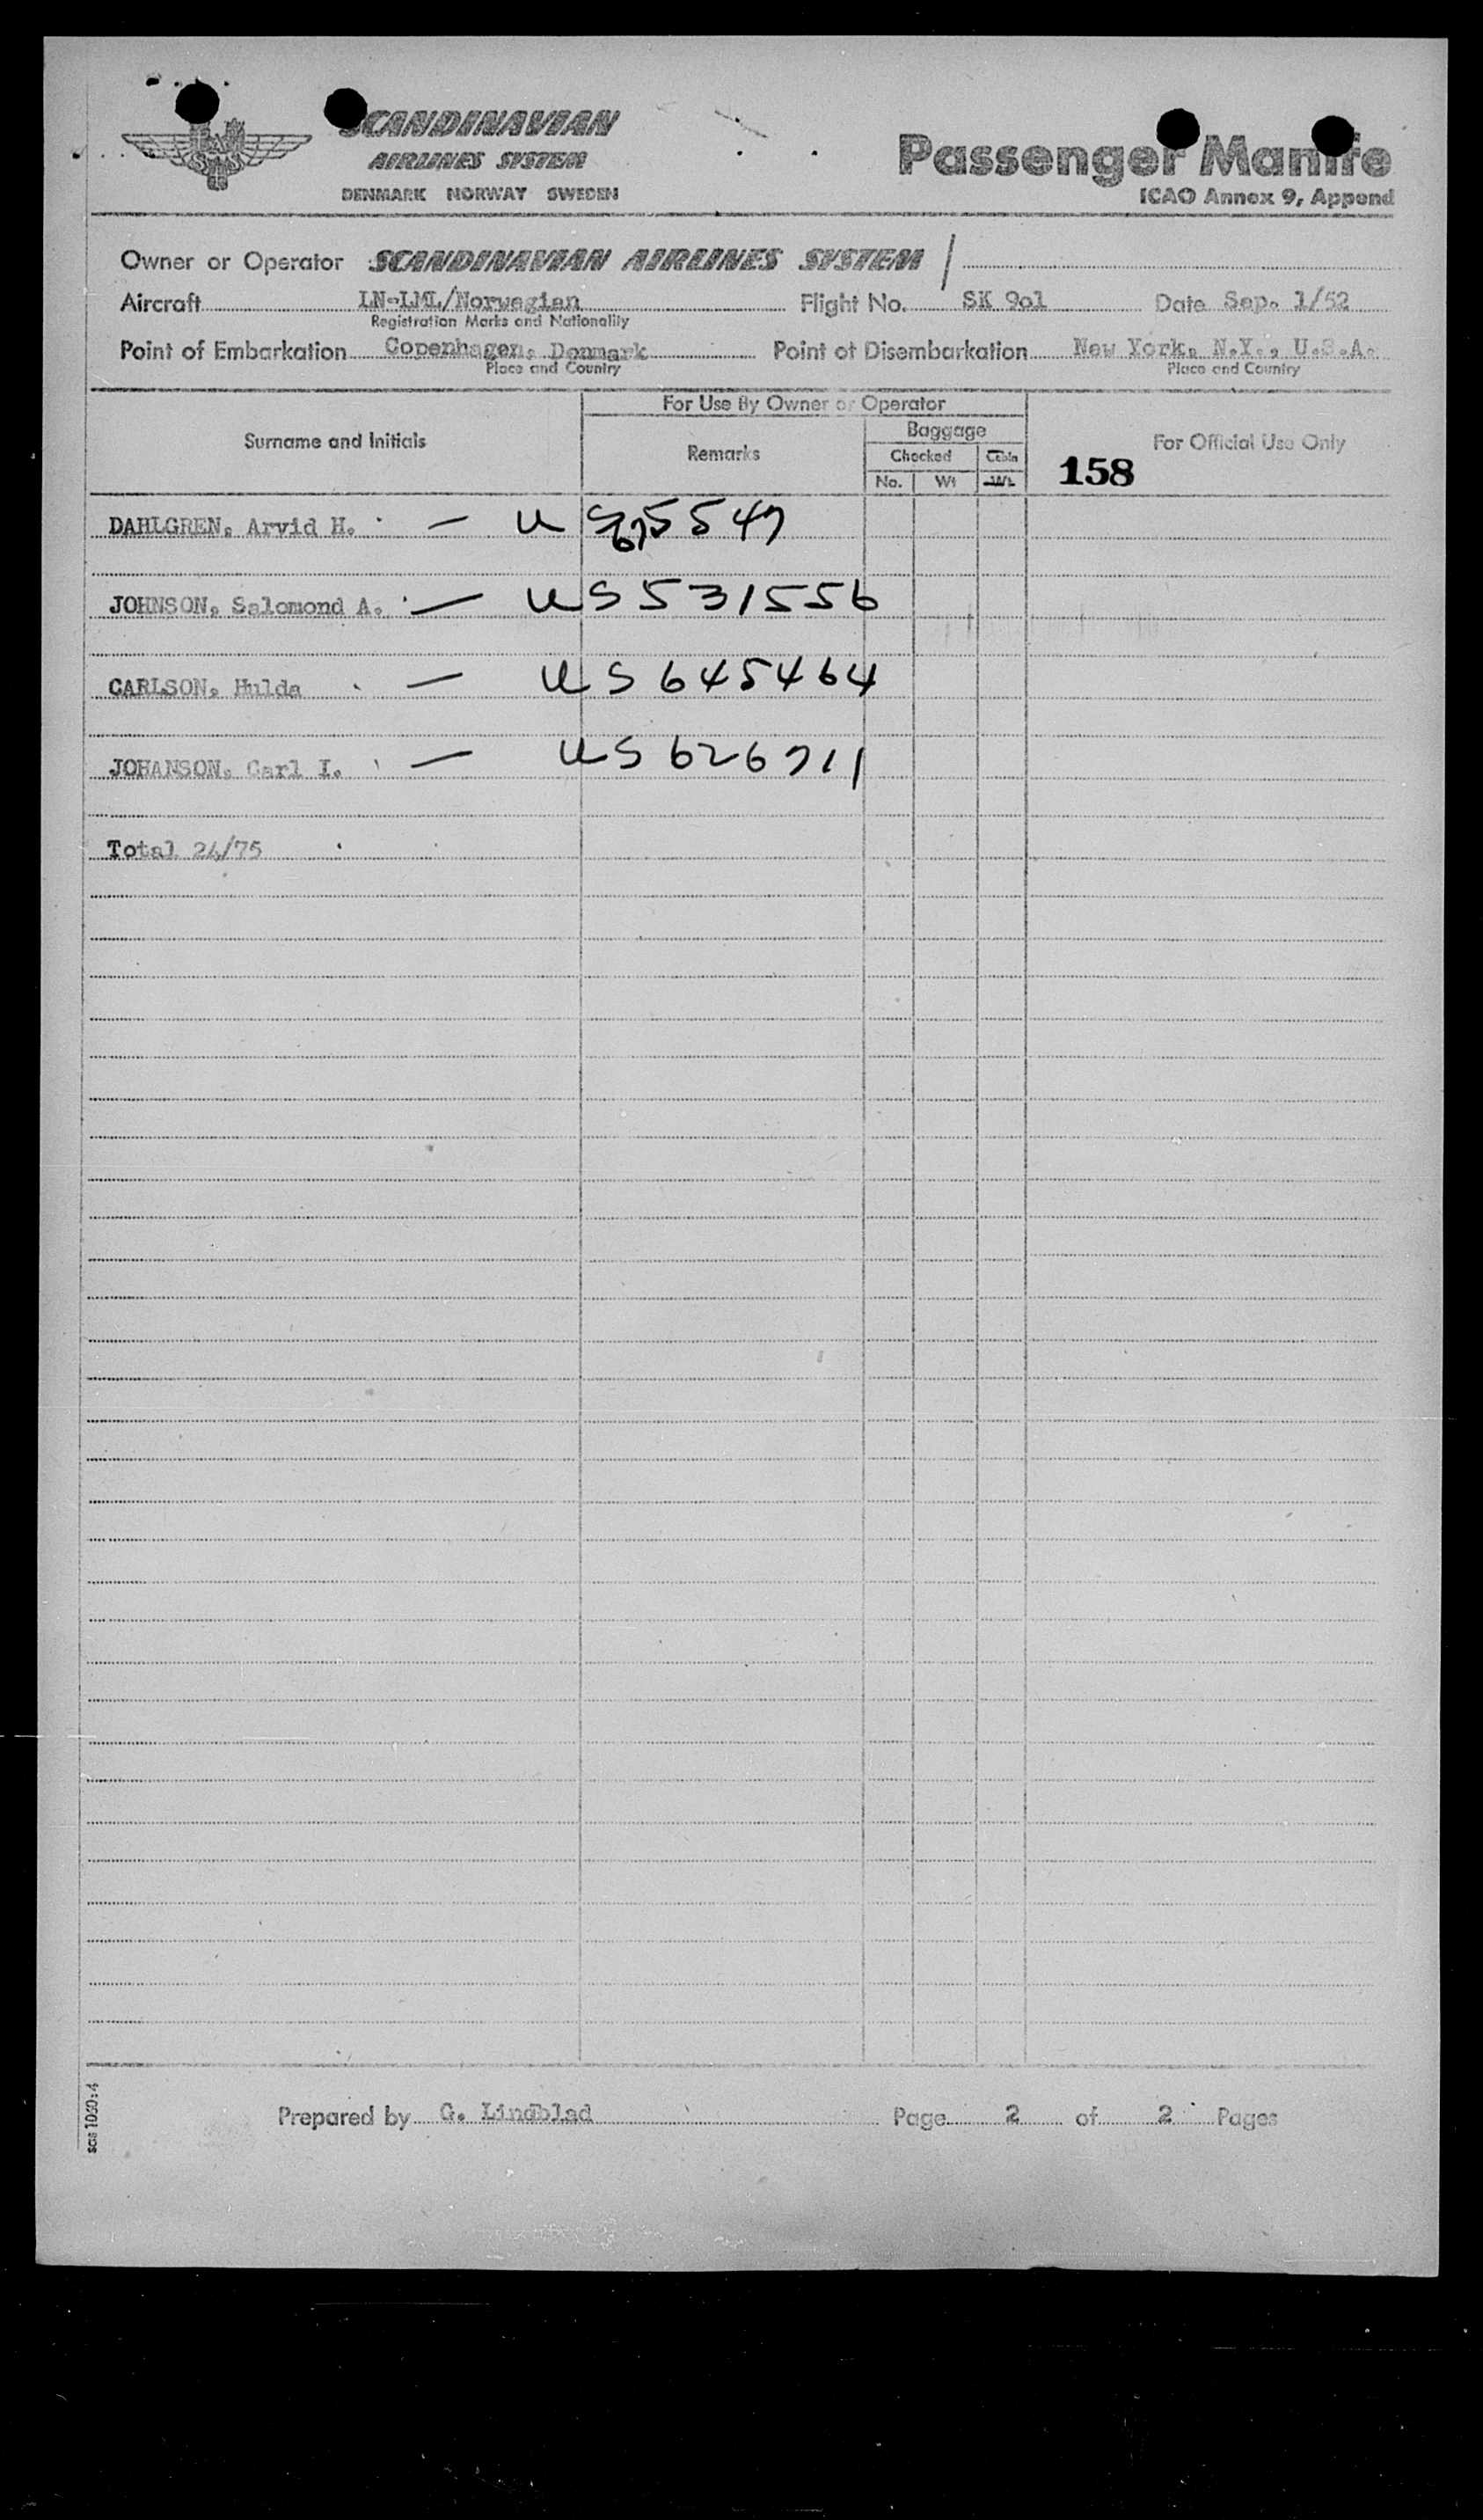 SCANDINAVIAN
AIRLINES SYSTEM
DENMARK NORWAY SWEDEN
Passenger Manife
ICAO Annex 9, Append
Owner or Operator SCANDINAVIAN AIRLINES SYSTEM /
Aircraft LN-LML/Norwegian Flight No. SK 9o1 Date Sep. 1/52
Registration Marks and Nationality
Point of Embarkation Copenhagen, Denmark Point of Disembarkation New York, N.Y., U.S.A.
Place and Country Place and Country
For Use By Owner or Operator
Surname and Initials Remarks Baggage For Official Use Only
Checked Cabin
No. Wt Wt.
158
DAHLGREN, Arvid H. — US
JOHNSON, Salomond A. — US 531556
CARLSON, Hulda — US 645464
JOHANSON, Carl I. — US 626711
Total 24/75
Prepared by G. Lindblad Page 2 of 2 Pages
sas 1060:4